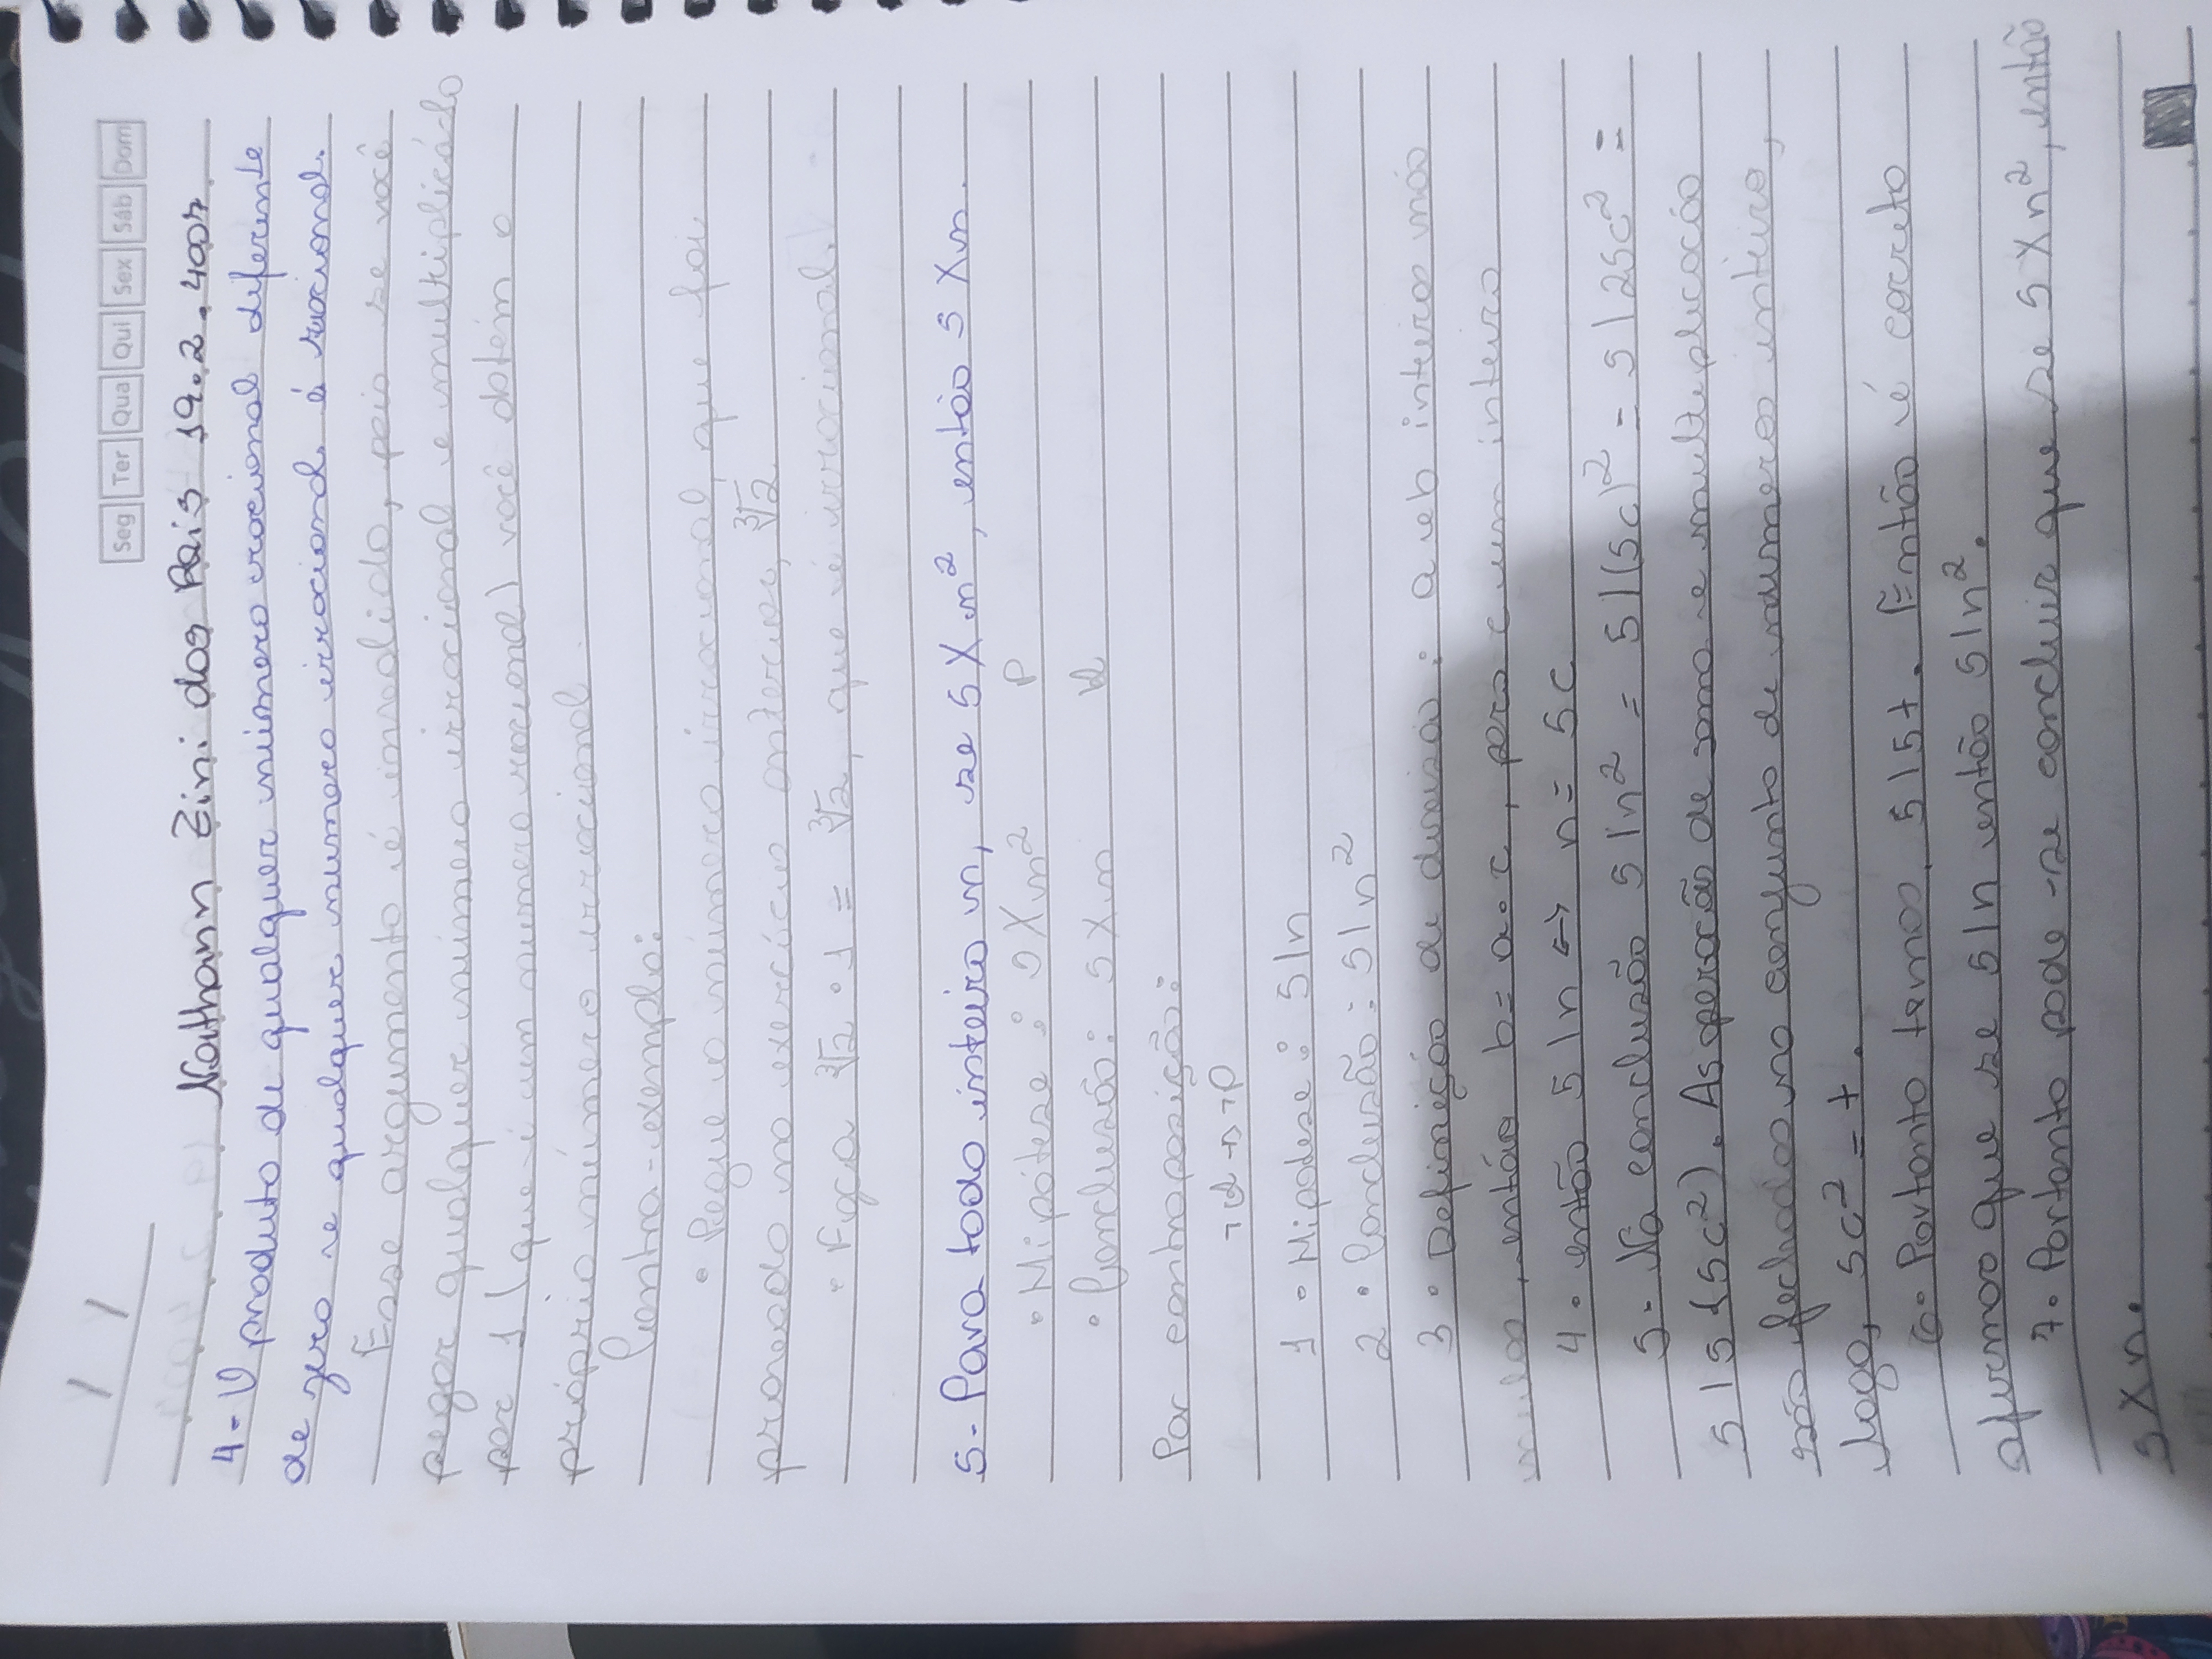 Seg Ter Qua Qui Sex Sáb Dom
Nathann Zini dos Reis 19.2.4007
4- O produto de qualquer número racional diferente
de zero e qualquer numero irracional é racional.
Esse argumento é invalido, pois se você
pegar qualquer número irracional e multiplicá-lo
por 1 (que é um numero racional) você obtém o
próprio número irracional.
Contra-exemplo:
• Pegue o número irracional, que foi
provado no exercício anterior, ∛2
• Faça ∛2 • 1 = ∛2, que é irracional.
5- Para todo inteiro n, se 5 ∤ n², então 5 ∤ n.
• Hipótese: 5 ∤ n² P
• Conclusão: 5 ∤ n Q
Por contraposição:
¬Q → ¬P
1 • Hipotese: 5|n
2 • Conclusão: 5|n²
3 • Definição de divisão: a e b inteiros não
nulos, então b = a • c, para c um inteiro
4 • então 5|n ↔ n = 5c
5 - Na conclusão 5|n² = 5|(5c)² = 5|25c² =
5|5(5c²). As operação de soma e multiplicação
são fechados no conjunto de numeros inteiro,
logo, 5c² = t.
6 • Portanto temos, 5|5t. Então é correto
afirmar que se 5|n então 5|n².
7 • Portanto pode-se concluir que se 5 ∤ n², então
5 ∤ n.